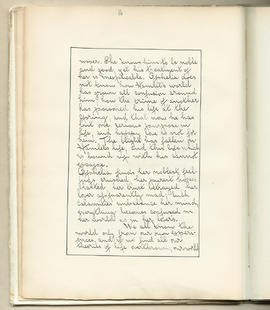 never. She knows him to be noble
and good, yet his treatment of
her is inexplicable. Ophelia does
not know how Hamlet's world
has grown all confusion around
him: how the crime of another
has poisoned his life at the
spring, and that now he has
but one serious purpose in
life, and happy love is not for
him. The blight has fallen on
Hamlet's life, and this life which
is bound up with his cannot
escape.
Ophelia finds her noblest feel-
ings crushed, her purest hopes
blasted, her trust betrayed, her
lover apparently mad. Such
calamities unbalance her mind,
everything becomes confused in
her world as in her lover's.
We all know the
world only from our own experi-
ences, and if we find all our
theories of life overthrown, our world